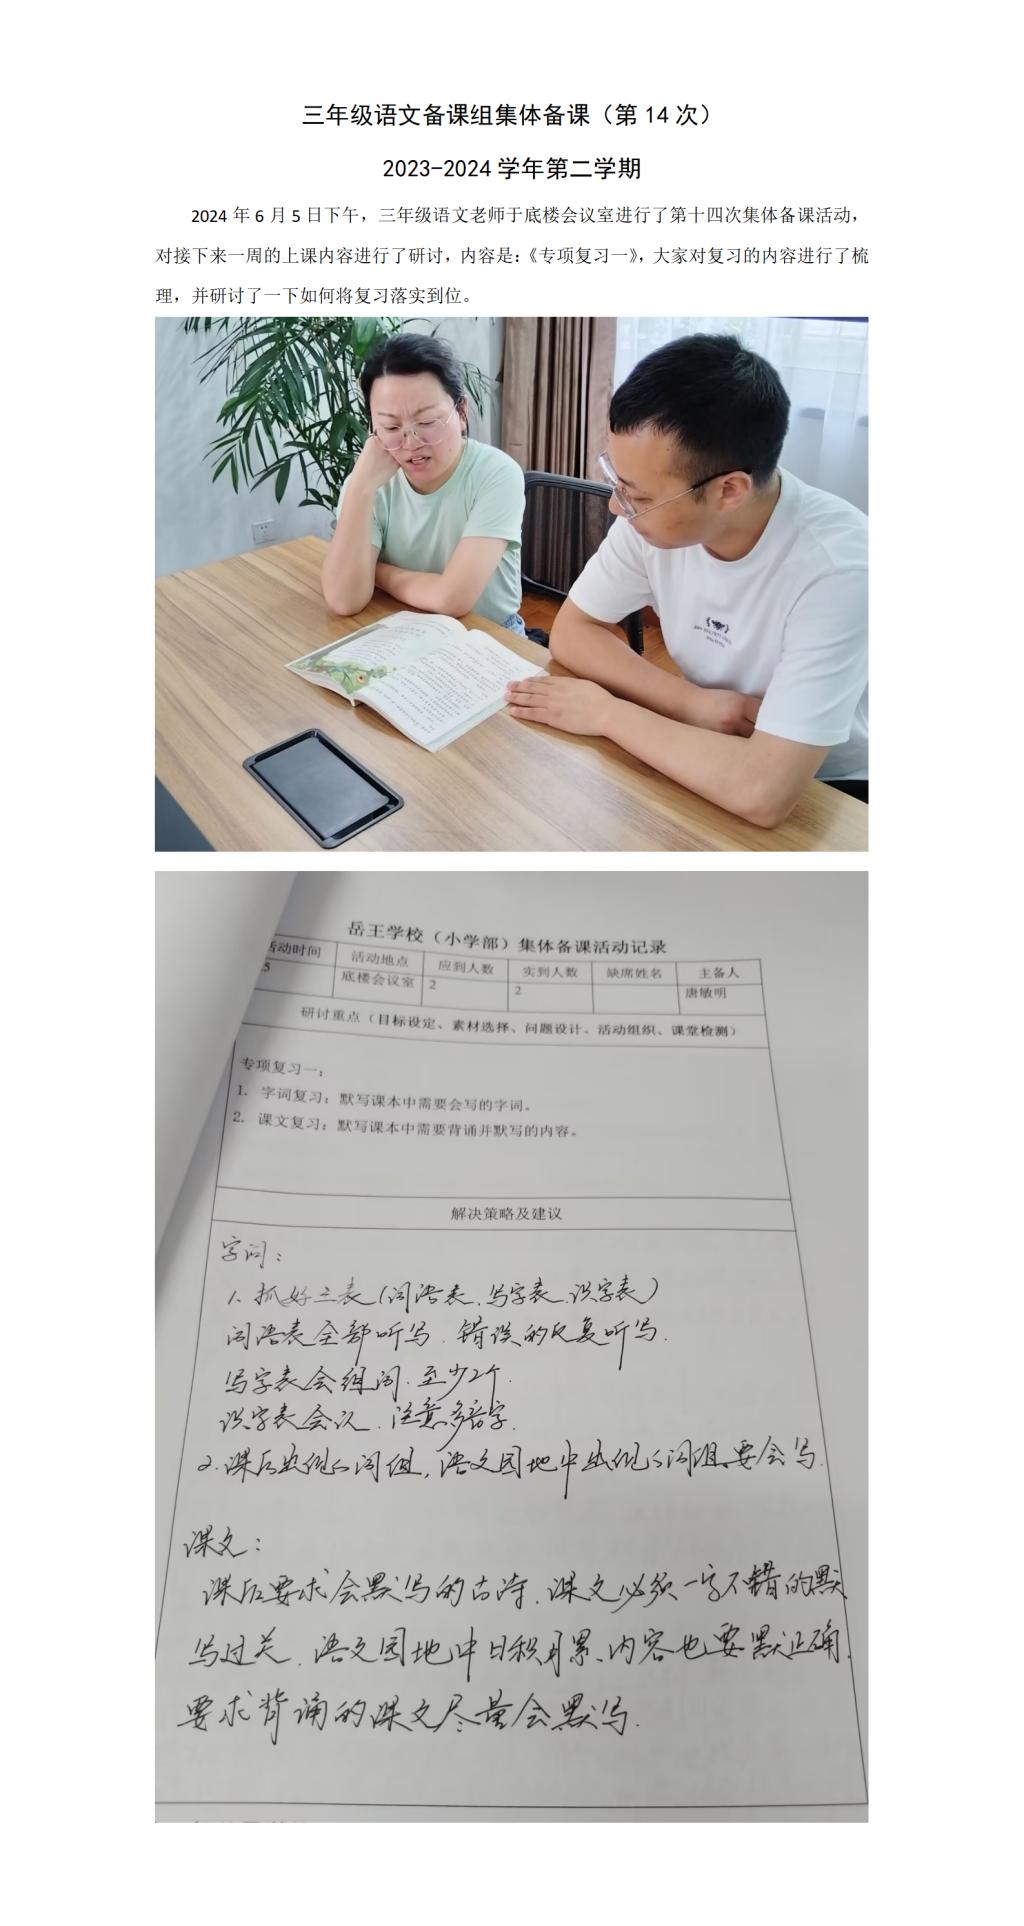 三年级语文备课组集体备课（第 14 次）
2023-2024 学年第二学期
2024 年 6 月 5 日下午，三年级语文老师于底楼会议室进行了第十四次集体备课活动，
对接下来一周的上课内容进行了研讨，内容是：《专项复习一》，大家对复习的内容进行了梳
理，并研讨了一下如何将复习落实到位。
岳王学校（小学部）集体备课活动记录
活动时间 活动地点 应到人数 实到人数 缺席姓名 主备人
.5 底楼会议室 2 2 唐敏明
研讨重点（目标设定、素材选择、问题设计、活动组织、课堂检测）
专项复习一：
1. 字词复习：默写课本中需要会写的字词。
2. 课文复习：默写课本中需要背诵并默写的内容。
解决策略及建议
字词：
1、抓好三表（词语表、写字表、识字表）
词语表全部听写、错误的反复听写.
写字表会组词、至少2个.
识字表会认、注意多音字.
2、课后出现的词组，语文园地中出现的词组要会写.
课文：
课后要求会默写的古诗、课文必须一字不错的默
写过关、语文园地中日积月累、内容也要默正确.
要求背诵的课文尽量会默写.